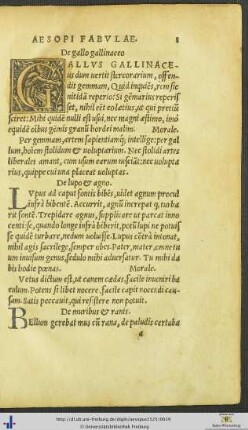 AESOPI FABVLAE. 8
De gallo gallinaceo
GALLVS GALLINACE-
us dum vertit stercorarium, offen-
dit gemmam, Quid inquiēs, rem sic
nitidā reperio? Si gēmarius reperis
set, nihil eēt eo lætius, ut qui preciū
sciret: Mihi quidē nulli est usui, nec magni æstimo, imò
equidē oībus gēmis granū hordei malim. Morale.
Per gemmam, artem sapientiamq́; intellige: per gal
lum, hoīem stolidum & voluptarium. Nec stolidi artes
liberales amant, cum usum earum nesciāt: nec volupta
rius, quippe cui una placeat voluptas.
De lupo & agno.
LVpus ad caput fontis bibēs, uidet agnum procul
infrà bibentē. Accurrit, agnū increpat q, turba
rit fontē. Trepidare agnus, supplicare ut parcat inno
centi: se, quando longe infrà biberit, potū lupi ne potuis
se quidē turbare, nedum uoluisse. Lupus cōtrà intonat,
nihil agis sacrilege, semper obes. Pater, mater, omne tu
um inuisum genus, sedulo mihi aduersatur. Tu mihi da
bis hodie pœnas. Morale.
Vetus dictum est, ut canem cædas, facile inueniri ba
culum. Potens si libet nocere, facile capit nocēdi cau-
sam. Satis peccauit, qui resistere non potuit.
De muribus & ranis.
BEllum gerebat mus cū rana, de paludis certaba
http://dl.ub.uni-freiburg.de/diglit/aesopus1521/0019
© Universitätsbibliothek Freiburg